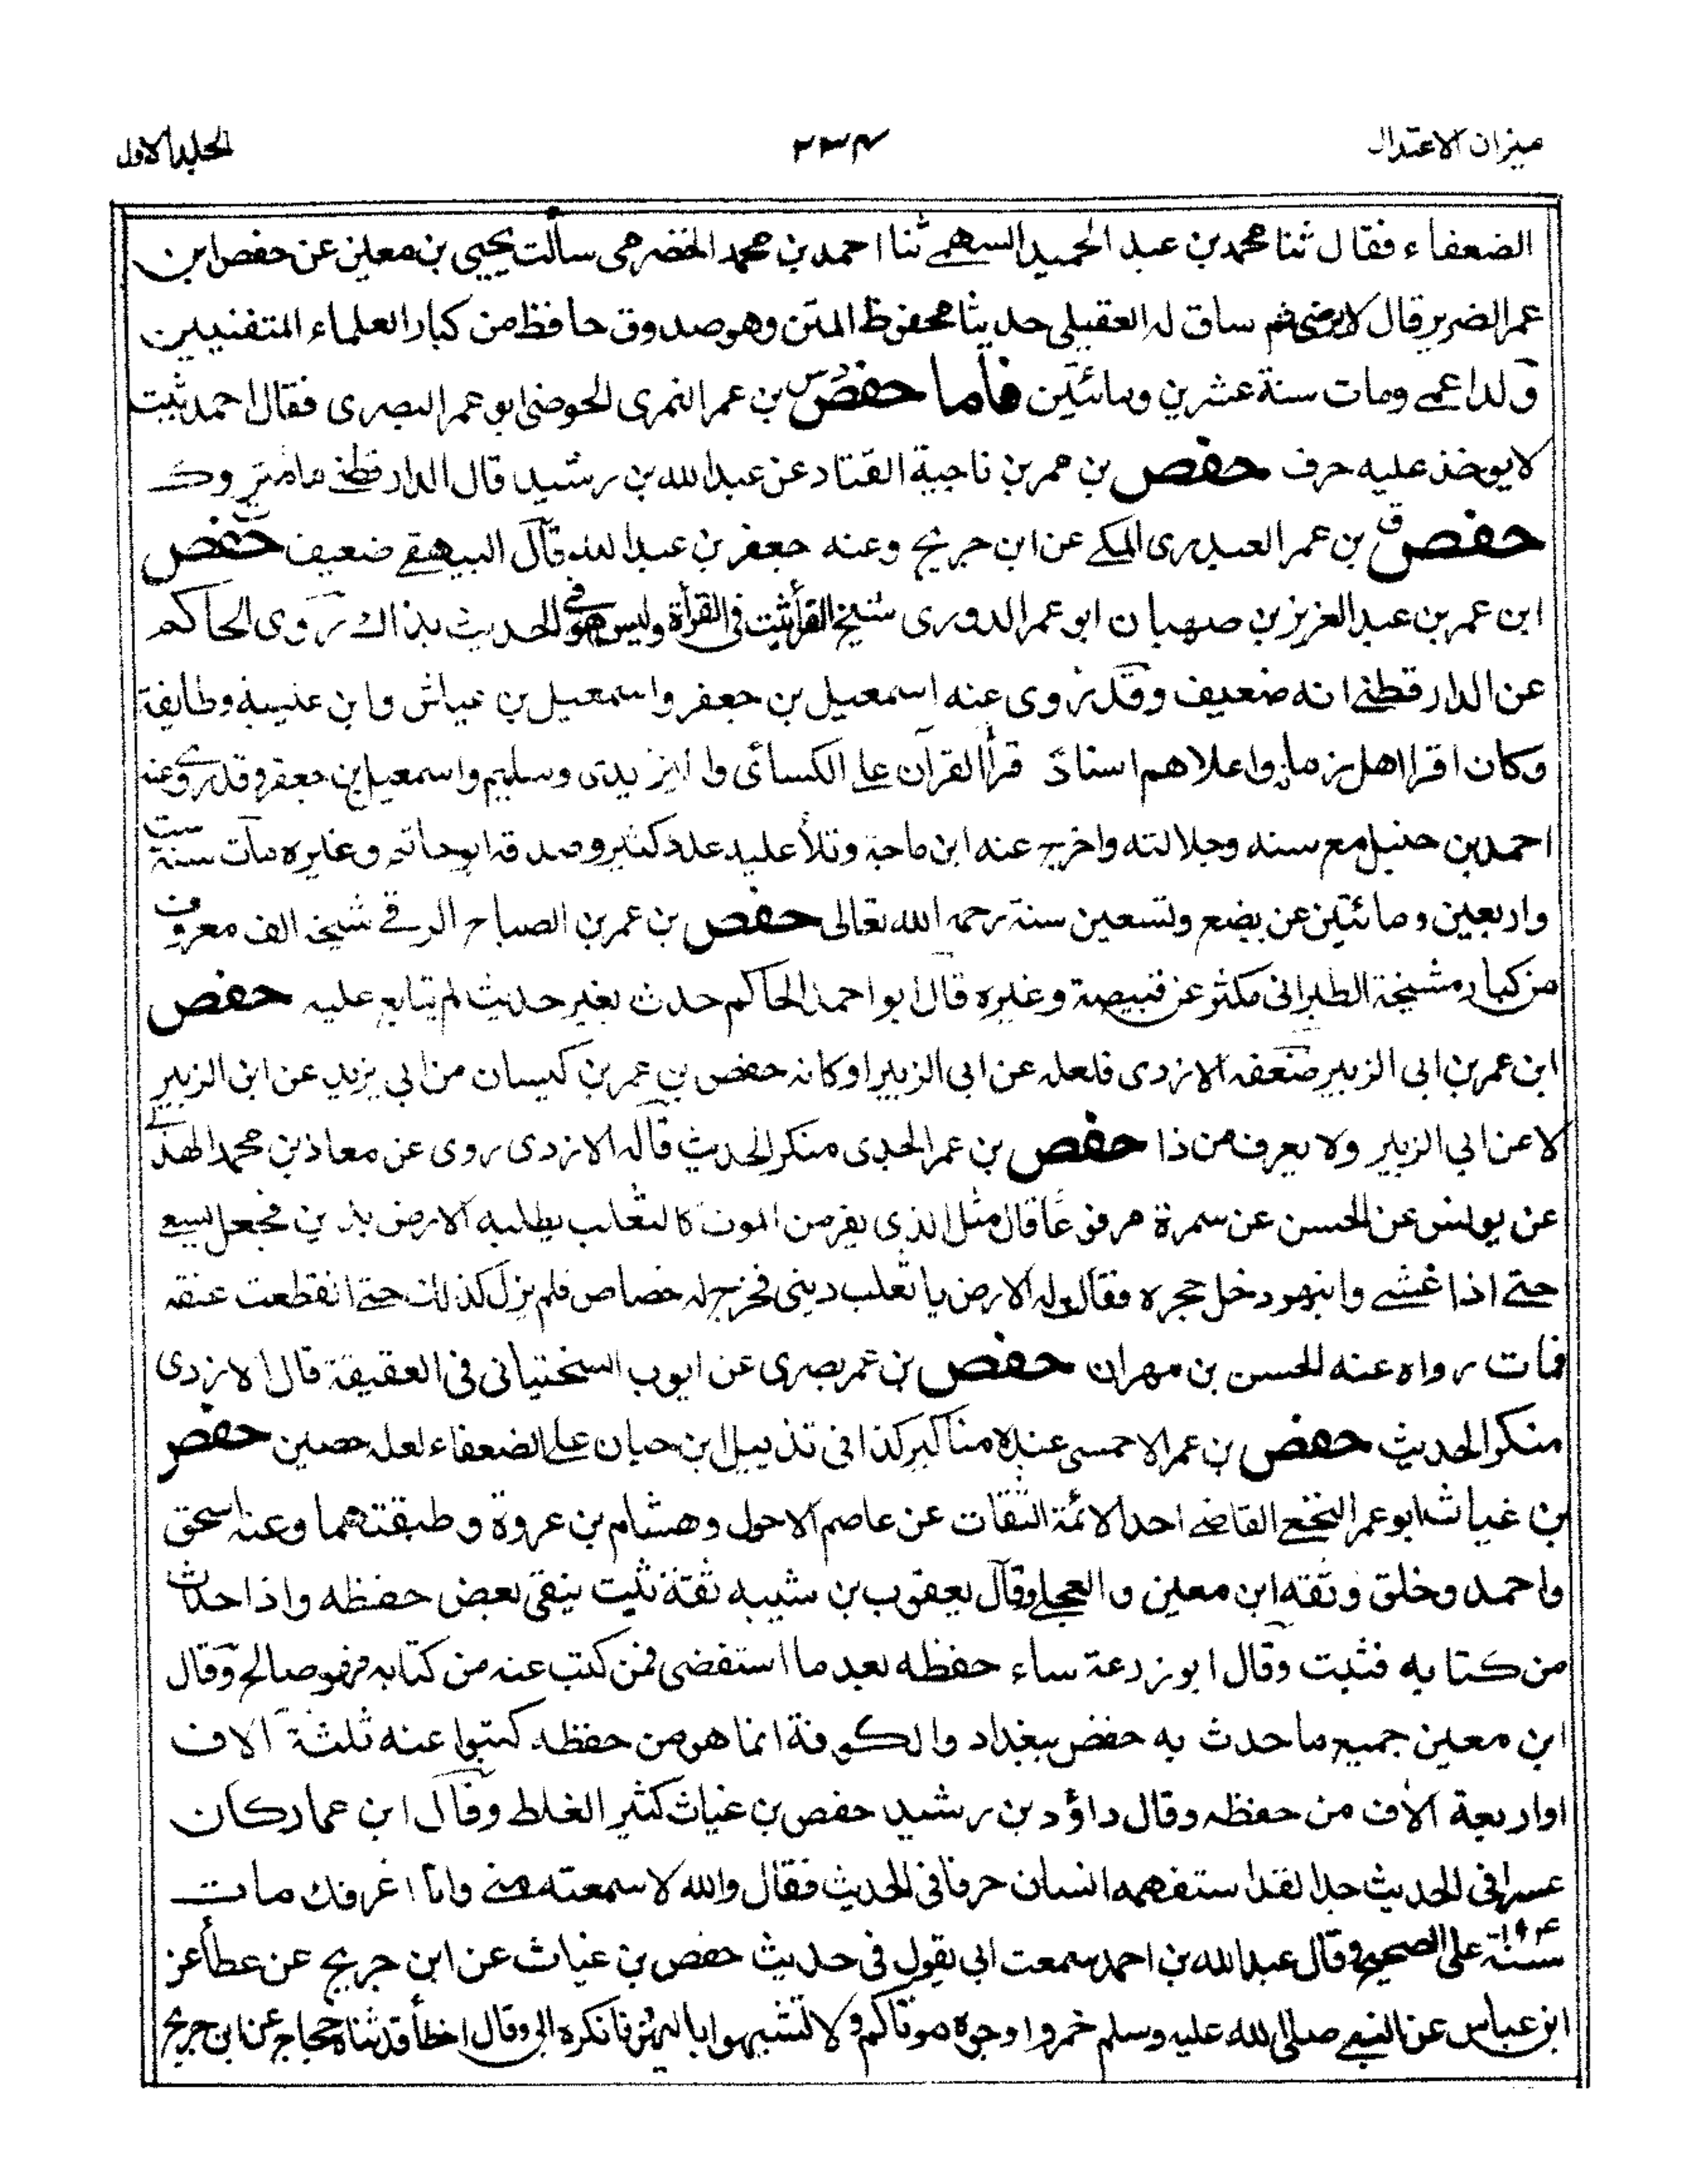 ميزان الاعتدال
٢٣٤
الجلد الاول
الضعفاء فقال ثنا محمد بن عبد الحميد السهمے ثنا احمد بن محمد الحضرمى سألت يحيى بن معين عن حفص ابن
عمر الضرير قال لا يرضى ثم ساق له العقيلى حديثا محفوظ المتن وهو صدوق حافظ من كبار العلماء المتفنيين
ولد اعمے ومات سنة عشرين ومائتين فاما حفص بن عمر النمرى الحوضى ابو عمر البصرى فقال احمد ثبت
لا يوخذ عليه حرف حفص بن عمر بن ناجية القناد عن عبد الله بن رشيد قال الدارقطنے متروك
حفص ق بن عمر العبدرى المكے عن ابن جريج وعنه جعفر بن عبد الله قال البيهقے ضعيف حفص ق
ابن عمر بن عبد العزيز بن صهبان ابو عمر الدورى شيخ القرأ ثبت فى القرأة وليس هو فے الحديث بذاك روى الحاكم
عن الدارقطنے انه ضعيف وقد روى عنه اسمعيل بن جعفر واسمعيل بن عياش وابن عيينة وطايفة
وكان اقرا اهل زمانه واعلاهم اسنادً قرأ القرآن علے الكسائى واليزيدى وسليم واسمعيل بن جعفر وقد روى عنه
احمد بن حنبل مع سنه وجلالته واخرج عنه ابن ماجة وتلأ عليه عدد كثير وصدقه ابو حاتم وغيره مات سنة ست
واربعين ومائتين عن بضع وتسعين سنة رحمه الله تعالى حفص بن عمر بن الصباح الرقے شيخ الف معروف
من كبار مشيخة الطبرانى مكثر عن قبيصة وغيره قال ابو احمد الحاكم حدث بغير حديث لم يتابع عليه حفص
ابن عمر بن ابى الزبير ضعفه الازدى فلعله عن ابى الزبير او كانه حفص بن عمر بن كيسان من ابى يزيد عن ابن الزبير
لا عن ابي الزبير ولا يعرف من ذا حفص بن عمر الجدى منكر الحديث قاله الازدى روى عن معاذ بن محمد الهذلے
عن يونس عن الحسن عن سمرة مرفوعًا قال مثل الذى يفر من الموت كالثعلب يطلبه الارض بدين فجعل يسعے
حتے اذا غشے وانبهر دخل جحره فقال له الارض يا ثعلب دينى فخرج له خصاص فلم يزل كذلك حتے انقطعت عنقه
فمات رواه عنه الحسن بن مهران حفص بن عمر بصرى عن ايوب السختيانى فى العقيقة قال الازدى
منكر الحديث حفص بن عمر الاحمسى عنده مناكير كذا فى تذييل ابن حيان علے الضعفاء لعله حصين حفص
بن غياث ابو عمر النخعے القاضے احد الائمة الثقات عن عاصم الاحول وهشام بن عروة وطبقتهما وعنه اسحق
واحمد وخلق وثقه ابن معين والعجلے وقال يعقوب بن شيبه ثقة ثبت يتقى بعض حفظه واذا حدث
من كتابه فثبت وقال ابو زرعة ساء حفظه بعد ما استقضى فمن كتب عنه من كتابه فهو صالح وقال
ابن معين جميع ما حدث به حفص ببغداد والكوفة انما هو من حفظه كتبوا عنه ثلثة آلاف
او اربعة آلاف من حفظه وقال داؤد بن رشيد حفص بن غياث كثير الغلط وقال ابن عمار كان
عسرا فى الحديث جدا لقد استفهمه انسان حرفا فى الحديث فقال والله لا سمعته منے وانا اعرفك مات
سنة على الصحيح وقال عبد الله بن احمد سمعت ابى يقول فى حديث حفص بن غياث عن ابن جريج عن عطأ عن
ابن عباس عن النبے صلى الله عليه وسلم خمروا وجوه موتاكم ولا تشبهوا باليهود فانكره ابى وقال اخطأ قد ثناه حجاج عن ابن جريج